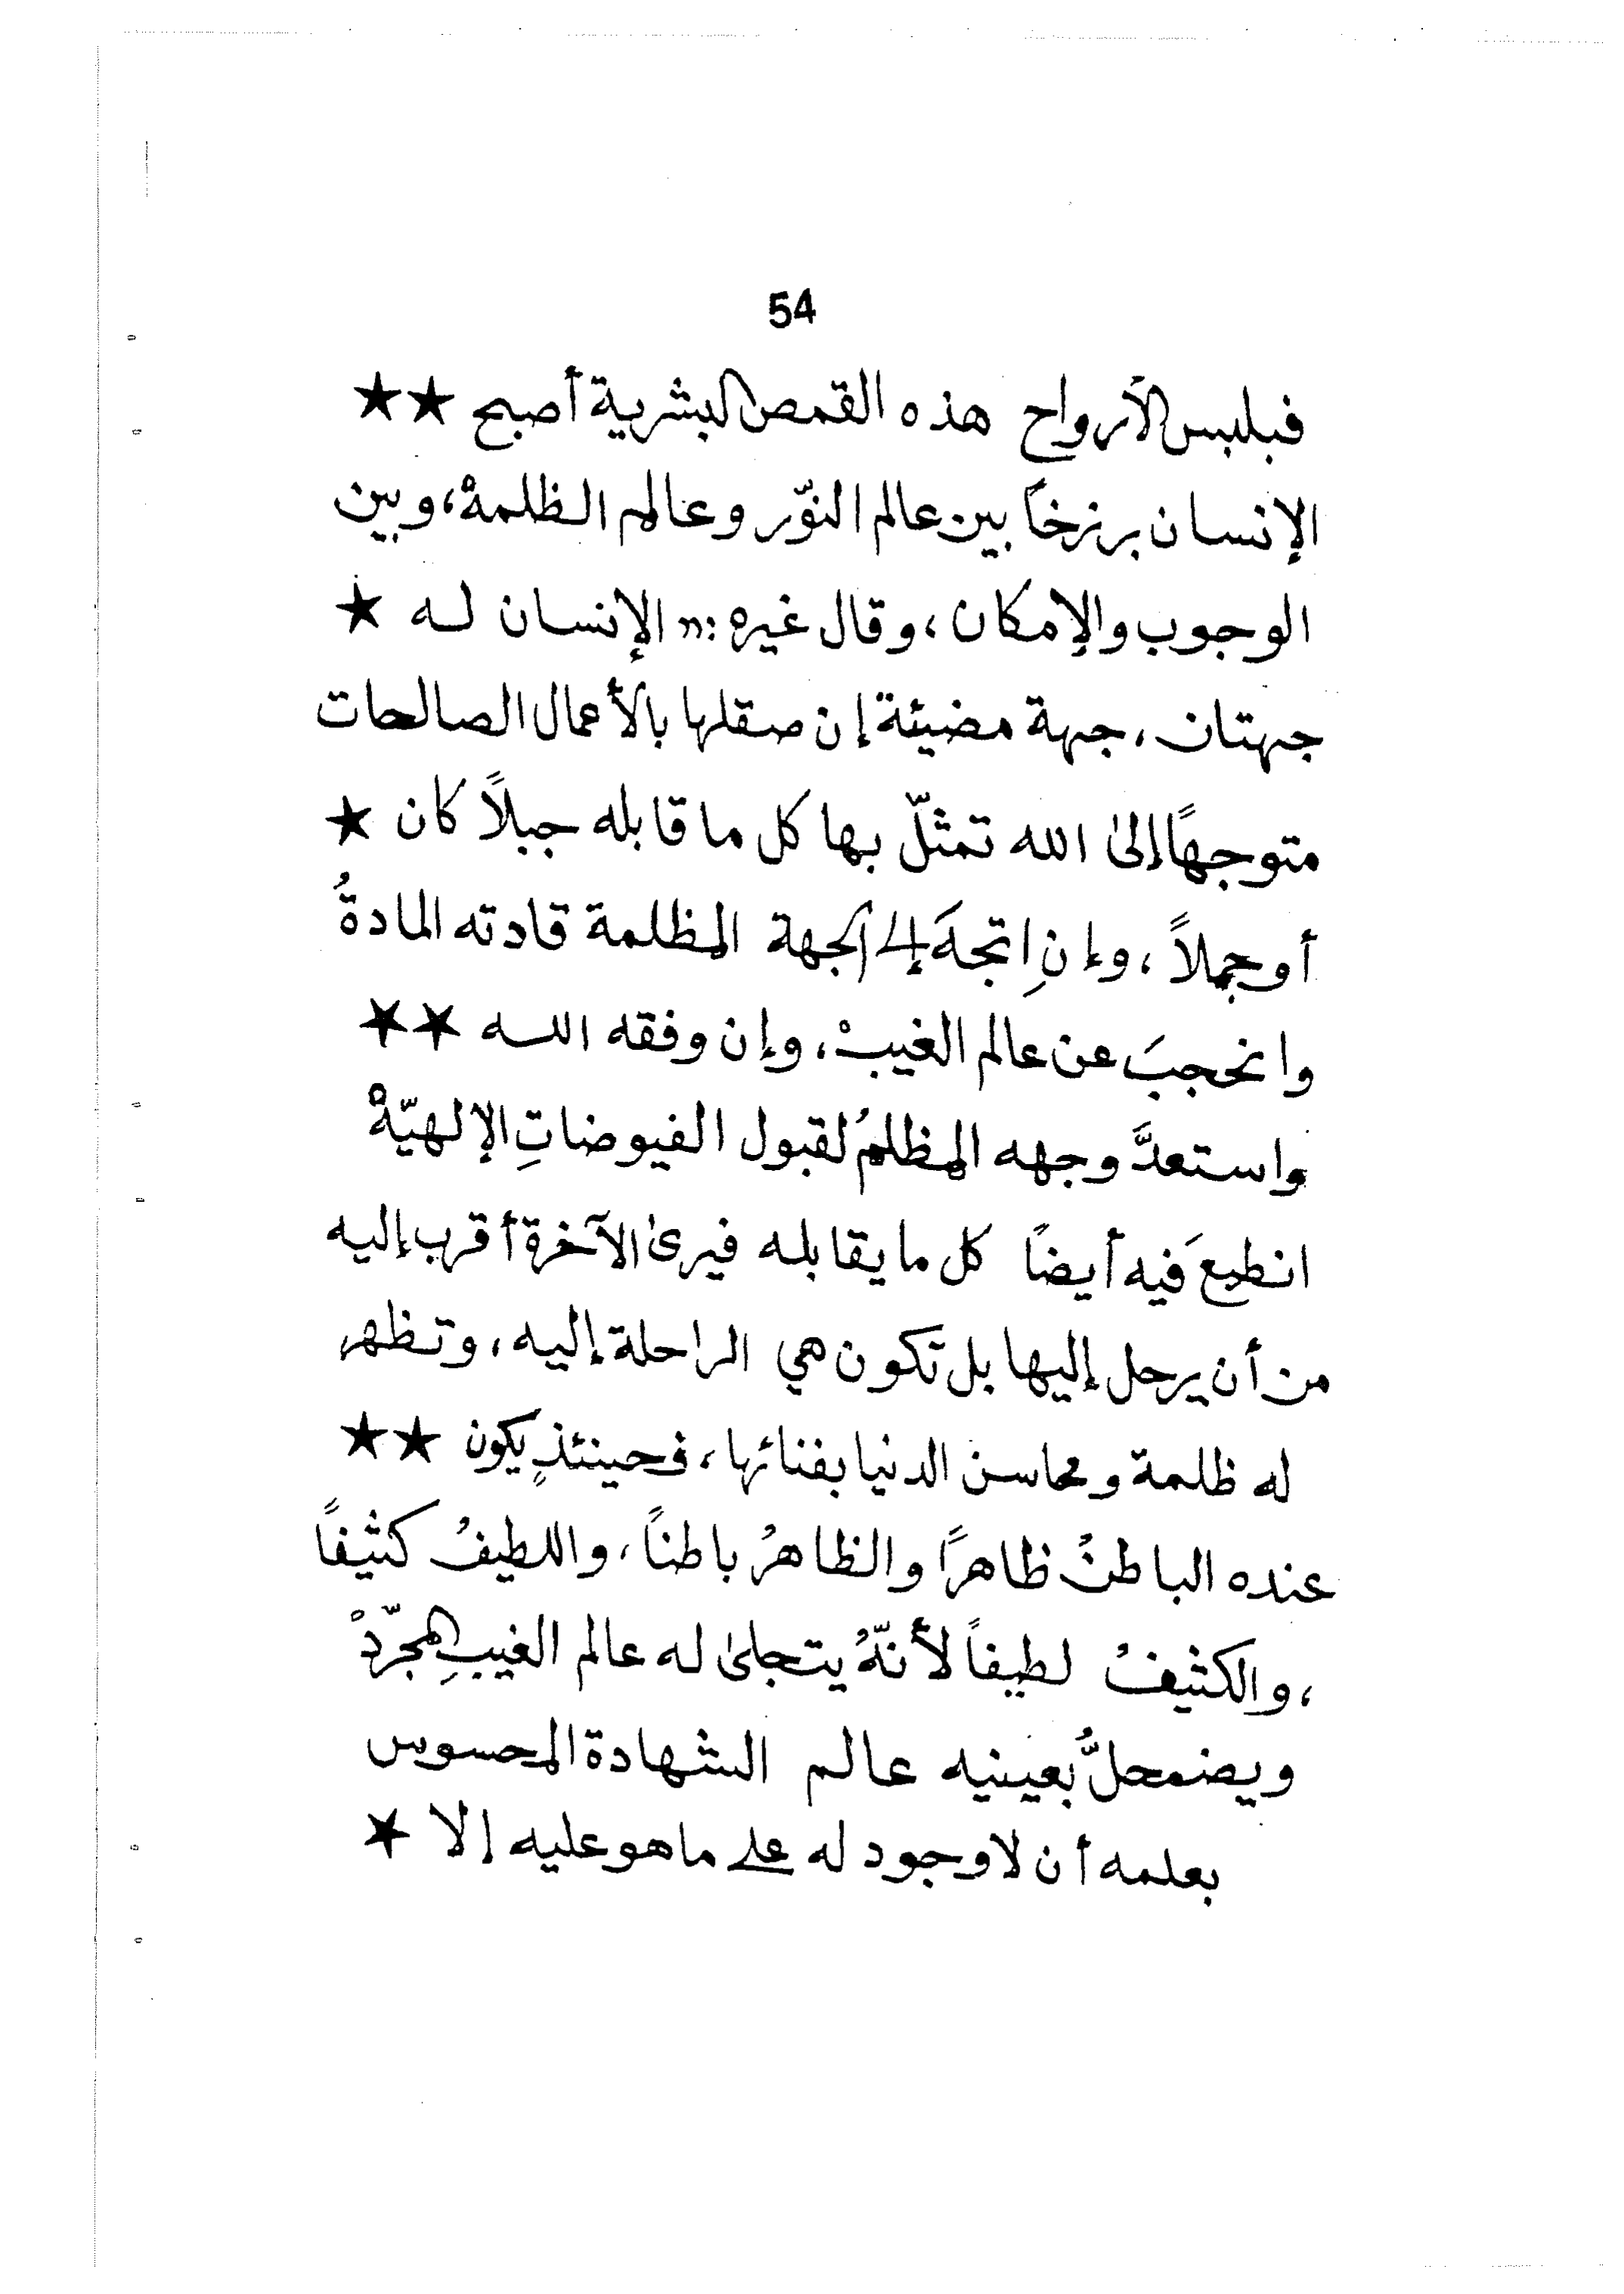 54
فبلبس الأرواح هذه القمص البشرية أصبح ★★
الإنسان برزخاً بين عالم النوّر وعالم الظلمةْ، وبين
الوجوب والإمكان، وقال غيره: «الإنسان لـه ★
جهتان، جهة مضيئة إن صقلها بالأعمال الصالحات
متوجهًا إلىٰ الله تمثلّ بها كل ما قابله جبلاً كان ★
أو جملاً، وإنِ اتجهَ إلى الجهة المظلمة قادته المادةُ
وانحجبَ عن عالم الغيبْ، وإن وفقه اللـه ★★
واستعدَّ وجهه المظلمُ لقبول الفيوضاتِ الإلهيّةْ
انطبعَ فيه أيضاً كل ما يقابلـه فيرىٰ الآخرة أقرب إليه
من أن يرحل إليها بل تكون هي الراحلة إليه، وتظهر
له ظلمة ومحاسن الدنيا بفنائها، فحينئذٍ يكون ★★
عنده الباطنُ ظاهراً والظاهرُ باطناً، واللطيفُ كثيفاً
، والكثيفُ لطيفاً لأنّهُ يتجلىٰ له عالم الغيبِ المجرّدْ
ويضمحلُّ بعينيه عالم الشهادة المحسوس
بعلمه أن لا وجود له على ما هو عليه إلا ★